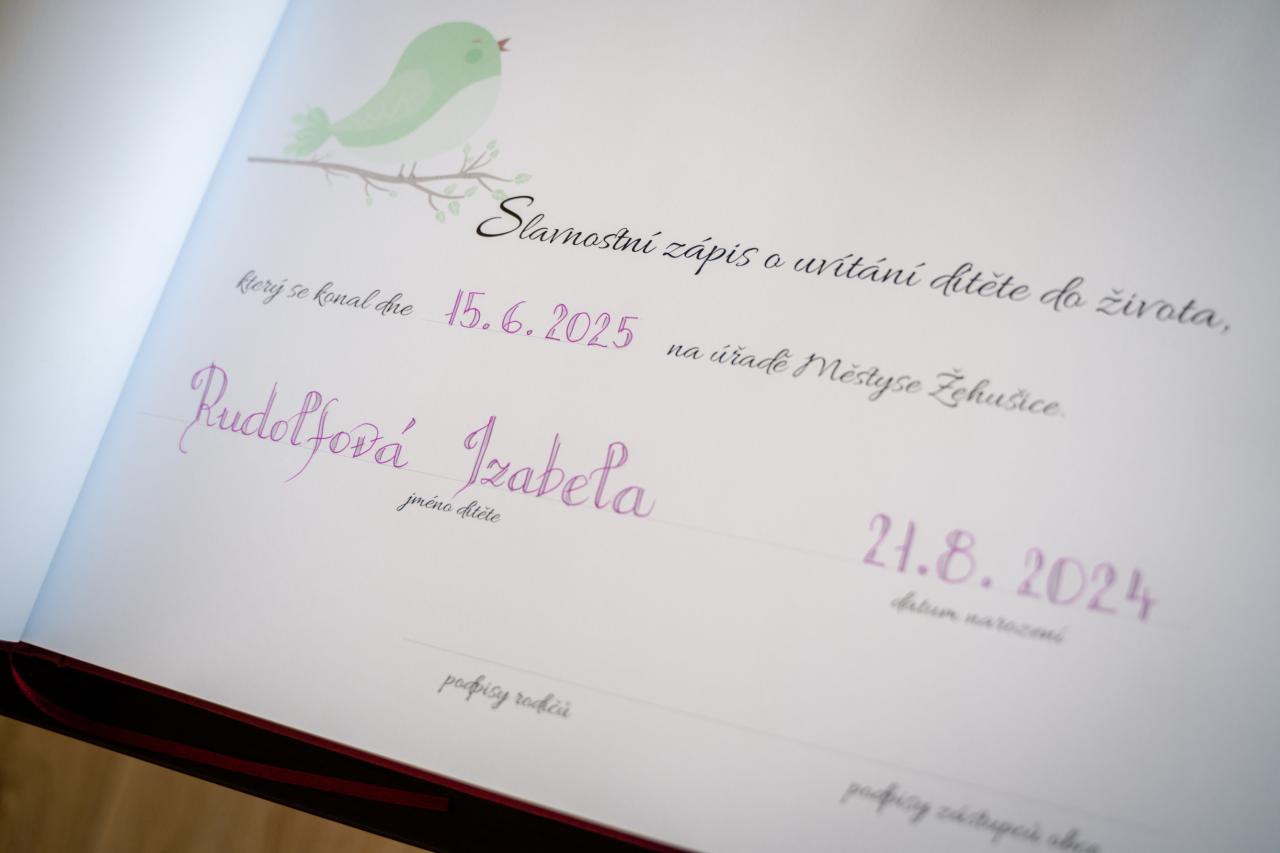 Slavnostní zápis o uvítání dítěte do života,
který se konal dne 15.6. 2025 na úřadě Městyse Žehušice.
Rudolfová Izabela 21.8. 2024
jméno dítěte datum narození
podpisy rodičů
podpisy zástupců obce